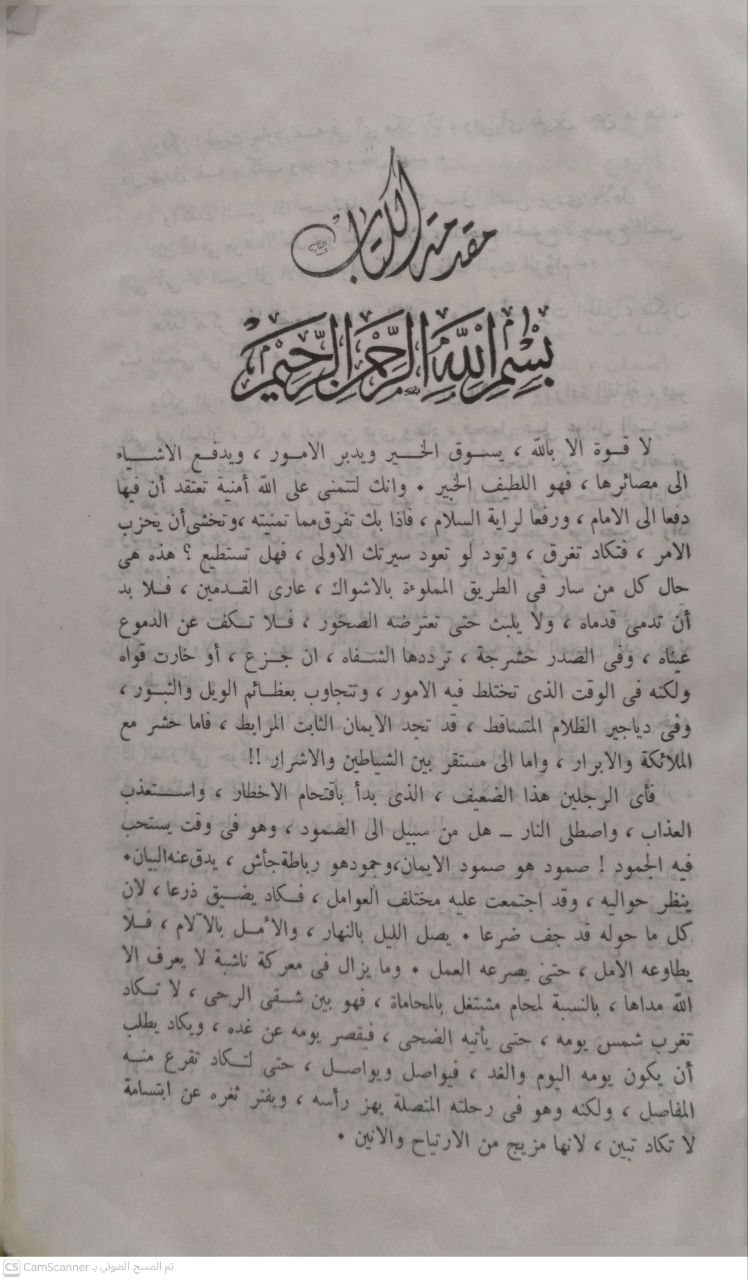 مقدمة الكتاب
بسم الله الرحمن الرحيم
لا قوة الا بالله ، يسوق الخير ويدبر الامور ، ويدفع الاشياء
الى مصائرها ، فهو اللطيف الخبير . وانك لتتمنى على الله أمنية تعتقد أن فيها
دفعا الى الامام ، ورفعا لراية السلام ، فاذا بك تفرق مما تمنيته ، وتخشى أن يحزب
الامر ، فتكاد تغرق ، وتود لو تعود سيرتك الاولى ، فهل تستطيع ؟ هذه هى
حال كل من سار فى الطريق المملوءة بالاشواك ، عارى القدمين ، فلا بد
أن تدمى قدماه ، ولا يلبث حتى تعترضه الصخور ، فلا تكف عن الدموع
عيناه ، وفى الصدر حشرجة ، ترددها الشفاه ، ان جزع ، أو خارت قواه
ولكنه فى الوقت الذى تختلط فيه الامور ، وتتجاوب بعظائم الويل والثبور ،
وفى دياجير الظلام المتساقط ، قد تجد الايمان الثابت المرابط ، فاما حشر مع
الملائكة والابرار ، واما الى مستقر بين الشياطين والاشرار !!
فأى الرجلين هذا الضعيف ، الذى بدأ باقتحام الاخطار ، واستعذب
العذاب ، واصطلى النار ــ هل من سبيل الى الصمود ، وهو فى وقت يستحب
فيه الجمود ! صمود هو صمود الايمان ، وجمود هو رباطة جأش ، يدق عنه البيان .
ينظر حواليه ، وقد اجتمعت عليه مختلف العوامل ، فكاد يضيق ذرعا ، لأن
كل ما حوله قد جف ضرعا . يصل الليل بالنهار ، والأمل بالآلام ، فلا
يطاوعه الأمل ، حتى يصرعه العمل . وما يزال فى معركة ناشبة لا يعرف الا
الله مداها ، بالنسبة لمحام مشتغل بالمحاماة ، فهو بين شقى الرحى ، لا تكاد
تغرب شمس يومه ، حتى يأتيه الضحى ، فيقصر يومه عن غده ، ويكاد يطلب
أن يكون يومه اليوم والغد ، فيواصل ويواصل ، حتى لتكاد تقرع منه
المفاصل ، ولكنه وهو فى رحلته المتصلة يهز رأسه ، ويفتر ثغره عن ابتسامة
لا تكاد تبين ، لانها مزيج من الارتياح والانين .
CS CamScanner تم المسح الضوئي بـ